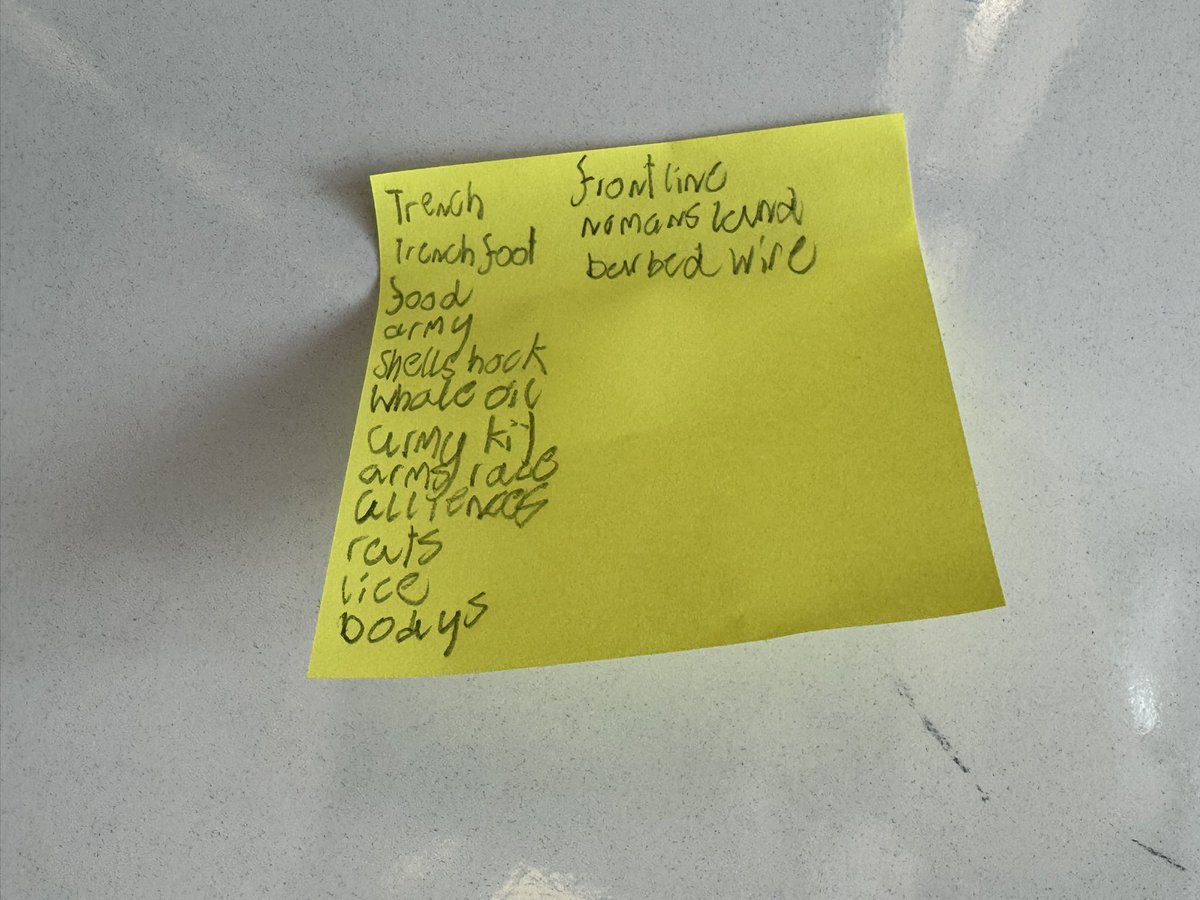 Trench
Trench foot
food
army
shell shock
whale oil
army kit
arms race
alliences
rats
lice
bodys
front line
nomans land
barbed wire